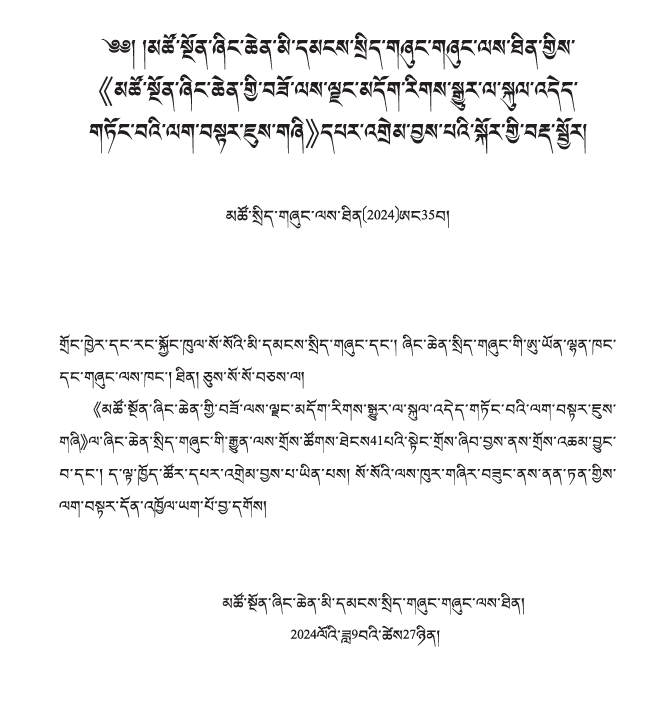 ༄༅། །མཚོ་སྔོན་ཞིང་ཆེན་མི་དམངས་སྲིད་གཞུང་གཞུང་ལས་ཐིན་གྱིས་
《མཚོ་སྔོན་ཞིང་ཆེན་གྱི་བཟོ་ལས་ལྗང་མདོག་རིགས་སྒྱུར་ལ་སྐུལ་འདེད་
གཏོང་བའི་ལག་བསྟར་ཇུས་གཞི》དཔར་འགྲེམ་བྱས་པའི་སྐོར་གྱི་བརྡ་སྦྱོར།
མཚོ་སྲིད་གཞུང་ལས་ཐིན(2024)ཨང35བ།
གྲོང་ཁྱེར་དང་རང་སྐྱོང་ཁུལ་སོ་སོའི་མི་དམངས་སྲིད་གཞུང་དང་། ཞིང་ཆེན་སྲིད་གཞུང་གི་ཨུ་ཡོན་ལྷན་ཁང་
དང་གཞུང་ལས་ཁང་། ཐིན། ཅུས་སོ་སོ་བཅས་ལ།
《མཚོ་སྔོན་ཞིང་ཆེན་གྱི་བཟོ་ལས་ལྗང་མདོག་རིགས་སྒྱུར་ལ་སྐུལ་འདེད་གཏོང་བའི་ལག་བསྟར་ཇུས་
གཞི》ལ་ཞིང་ཆེན་སྲིད་གཞུང་གི་རྒྱུན་ལས་གྲོས་ཚོགས་ཐེངས41པའི་སྟེང་གྲོས་ཞིབ་བྱས་ནས་གྲོས་འཆམ་བྱུང་
བ་དང་། ད་ལྟ་ཁྱོད་ཚོར་དཔར་འགྲེམ་བྱས་པ་ཡིན་པས། སོ་སོའི་ལས་ཁུར་གཞིར་བཟུང་ནས་ནན་ཏན་གྱིས་
ལག་བསྟར་དོན་འཁྱོལ་ཡག་པོ་བྱ་དགོས།
མཚོ་སྔོན་ཞིང་ཆེན་མི་དམངས་སྲིད་གཞུང་གཞུང་ལས་ཐིན།
2024ལོའི་ཟླ9བའི་ཚེས27ཉིན།